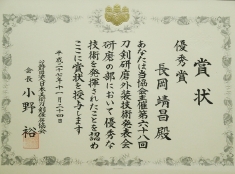 賞状
優秀賞
長岡靖昌殿
あなたは当協会主催第六十八回
刀剣研磨外装技術発表会
研磨の部において優秀な
技術を発揮されたことを認め
ここに賞状を授与します
平成二十七年十一月二十四日
公益財団法人日本美術刀剣保存協会
会長 小野裕